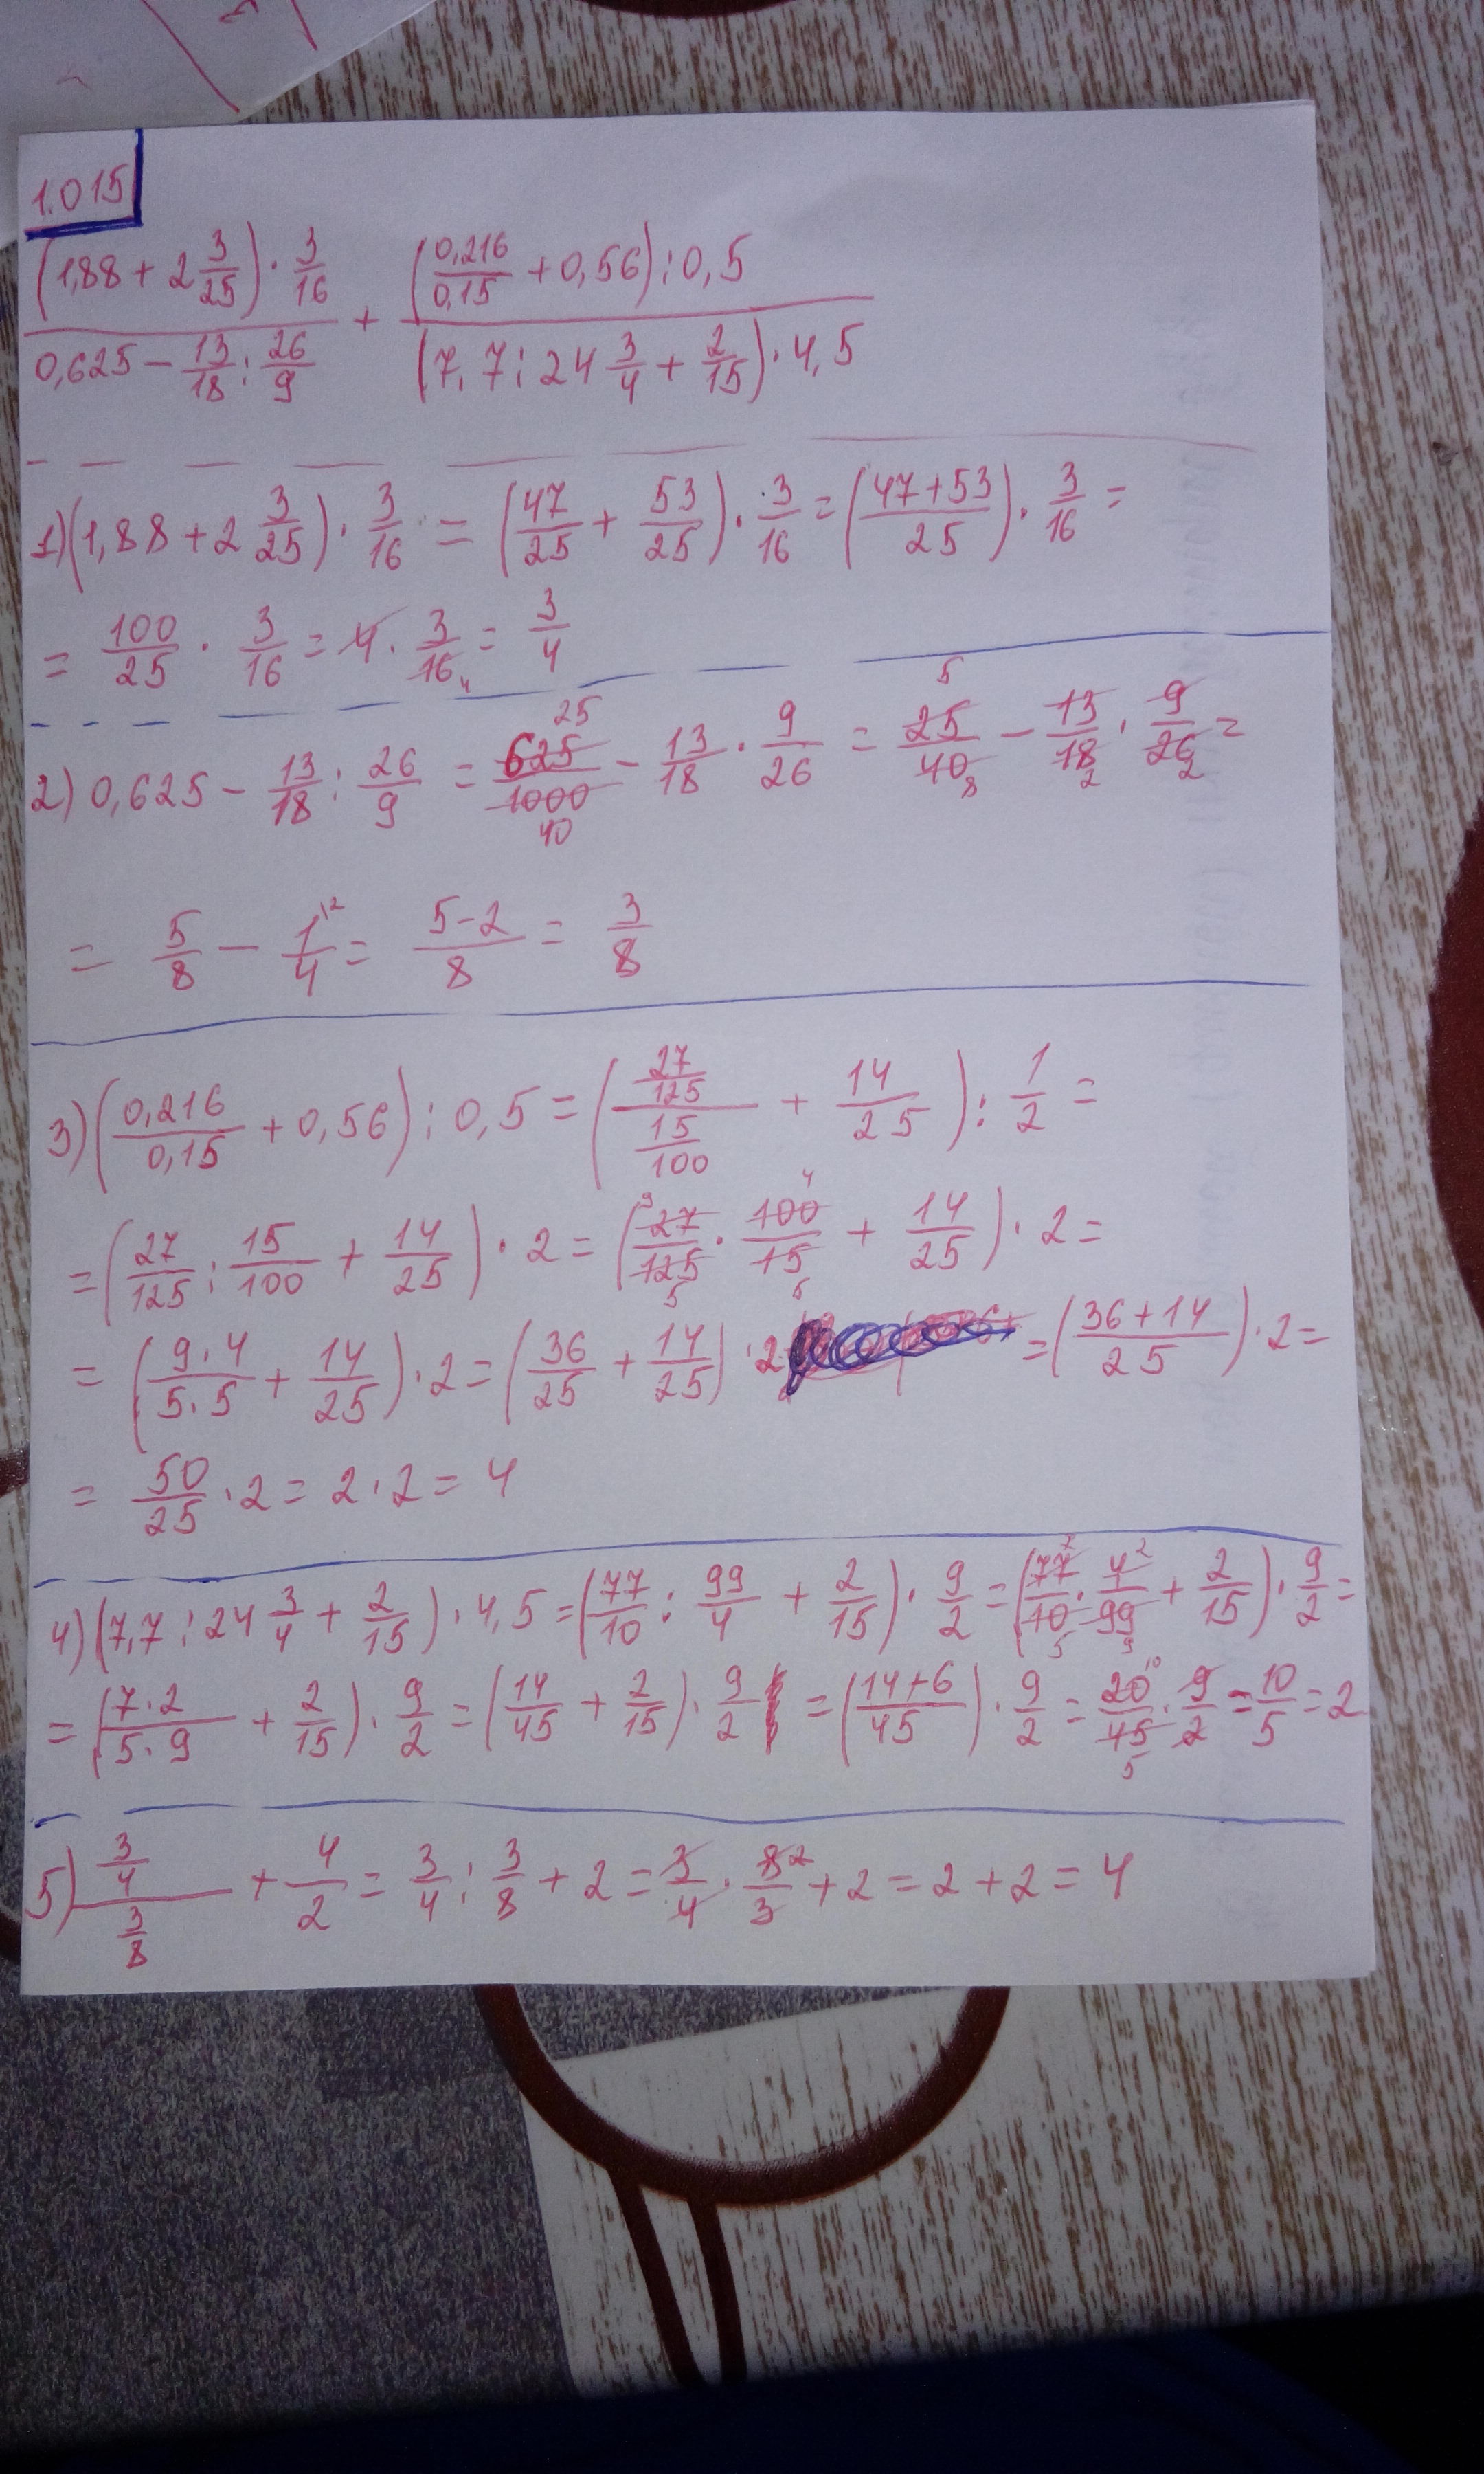 1.015
(1,88 + 2 3/25) · 3/16 / 0,625 − 13/18 : 26/9 + (0,216/0,15 + 0,56) : 0,5 / (7,7 : 24 3/4 + 2/15) · 4,5
1) (1,88 + 2 3/25) · 3/16 = (47/25 + 53/25) · 3/16 = (47+53/25) · 3/16 =
= 100/25 · 3/16 = 4 · 3/16 4 = 3/4
2) 0,625 − 13/18 : 26/9 = 625 25/1000 40 − 13/18 · 9/26 = 25 5/40 8 − 13/18 2 · 9/26 2 =
= 5/8 − 1/4 12 = 5−2/8 = 3/8
3) (0,216/0,15 + 0,56) : 0,5 = (27/125 / 15/100 + 14/25) : 1/2 =
= (27/125 : 15/100 + 14/25) · 2 = (27 9/125 5 · 100 4/15 5 + 14/25) · 2 =
= (9·4/5·5 + 14/25) · 2 = (36/25 + 14/25) · 2 = (36+14/25) · 2 =
= 50/25 · 2 = 2 · 2 = 4
4) (7,7 : 24 3/4 + 2/15) · 4,5 = (77/10 : 99/4 + 2/15) · 9/2 = (77 7/10 5 · 4 2/99 9 + 2/15) · 9/2 =
= (7·2/5·9 + 2/15) · 9/2 = (14/45 + 2/15) · 9/2 = (14+6/45) · 9/2 = 20 10/45 5 · 9/2 = 10/5 = 2
5) 3/4 / 3/8 + 4/2 = 3/4 : 3/8 + 2 = 3/4 · 8 2/3 + 2 = 2 + 2 = 4